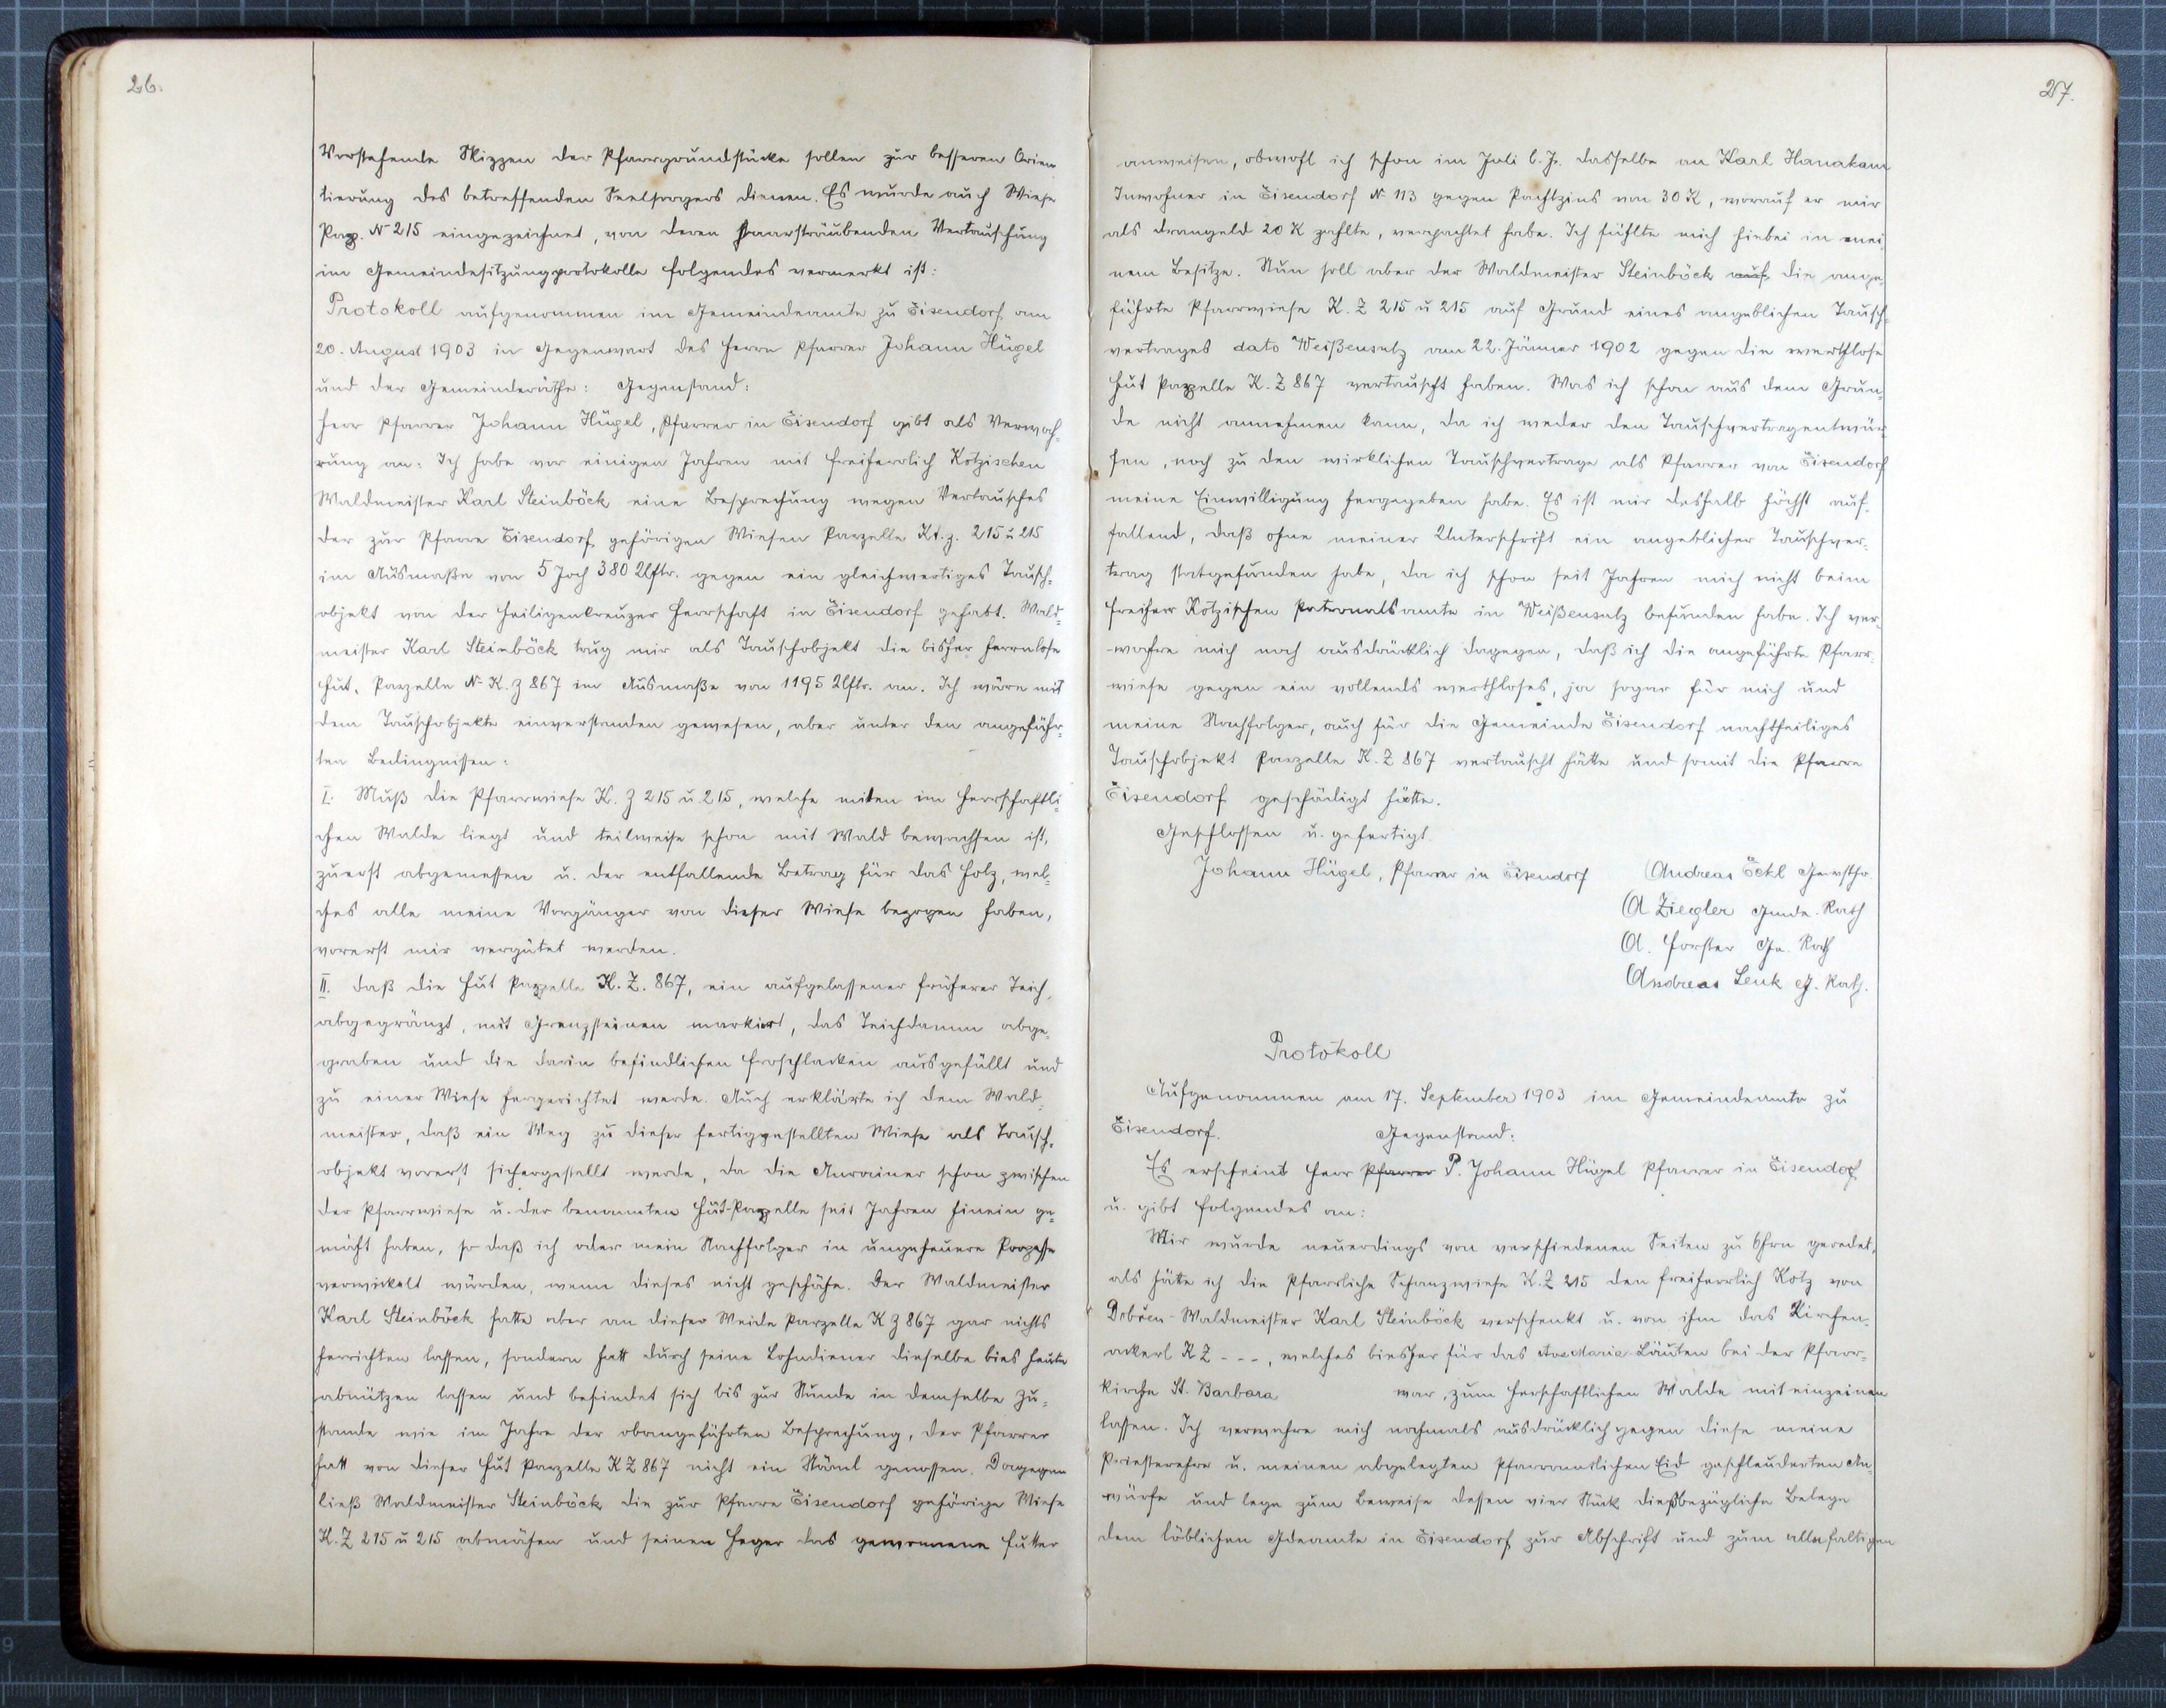 26.
Vorstehende Skizzen der Pfarrgrundstücke sollen zur besseren Orien
tierung des betreffenden Seelsorgers dienen. Es wurde auch Wiese
Parz. № 215 eingezeichnet, von deren haarsträubenden Vertauschung
im Gemeindesitzungsprotokolle folgendes vermerkt ist:
Protokoll aufgenommen im Gemeindeamte zu Eisendorf am
20. August 1903 in Gegenwart des Herrn Pfarrer Johann Hügel
und der Gemeinderäthe: Gegenstand:
Herr Pfarrer Johann Hügel, Pfarrer in Eisendorf gibt als Verwah-
rung an: Ich habe vor einigen Jahren mit freiherrlich Kotzischen
Waldmeister Karl Steinböck eine Besprechung wegen Vertausches
der zur Pfarre Eisendorf gehörigen Wiesen Parzelle Kt. z. 215 u 215
im Ausmaße von 5 Joch 380 Klftr. gegen ein gleichwertiges Tausch-
objekt von der Heiligenkreuzer Herrschaft in Eisendorf gehabt. Wald-
meister Karl Steinböck trug mir als Tauschobjekt die bisher herrnlose
Hut, Parzelle № K. z 867 im Ausmaße von 1195 Klftr. an. Ich wäre mit
dem Tauschobjekte einverstanden gewesen, aber unter den angeführ-
ten Bedingnissen:
I. Muß die Pfarrwiese K. z 215 u 215, welche mitten im herrschaftli-
chen Walde liegt und teilweise schon mit Wald bewachsen ist,
zuerst abgemessen u. der entfallende Betrag für das Holz, wel-
ches alle meine Vorgänger von dieser Wiese bezogen haben,
vorerst mir vergütet werden.
II. Daß die Hut Parzelle K. Z. 867, ein aufgelassener früherer Teich,
abgegränzt, mit Grenzsteinen markirt, das Teichdamm abge-
graben und die darin befindlichen Froschlacken ausgefüllt und
zu einer Wiese hergerichtet werde. Auch erklärte ich dem Wald-
meister, daß ein Weg zu dieser fertiggestellten Wiese als Tausch-
objekt vorerst sichergestellt werde, da die Anrainer schon zwischen
der Pfarrwiese u. der benannten Hut-Parzelle seit Jahren hinein ge-
mäht haben, so daß ich oder mein Nachfolger in ungeheuere Prozesse
verwickelt würden, wenn dieses nicht geschähe. Der Waldmeister
Karl Steinböck hatte aber an dieser Weide Parzelle K z 867 gar nichts
herrichten lassen, sondern hatt durch seine Lohndiener dieselbe bies heute
abnützen lassen und befindet sich bis zur Stunde in demselbe Zu-
stande wie im Jahre der obangeführten Besprechung, der Pfarrer
hatt von dieser Hut Parzelle K Z 867 nicht ein Häml genossen. Dagegen
ließ Waldmeister Steinböck die zur Pfarre Eisendorf gehörige Wiese
K. Z 215 u 215 abmähen und seinen Heger das gewonnene Futter
27.
anweisen, obwohl ich schon im Juli l. J. dasselbe an Karl Hanakam
Inwohner in Eisendorf № 113 gegen Pachtzins von 30 K, worauf er mir
als Drangeld 20 K zahlte, verpachtet habe. Ich fühlte mich hiebei in mei
nem Besitze. Nun soll aber der Waldmeister Steinböck auf die ange-
führte Pfarrwiese K. Z 215 u 215 auf Grund eines angeblichen Tausch-
vertrages dato Weißensulz am 22. Jänner 1902 gegen die werthlose
Hut Parzelle K. Z 867 vertauscht haben. Was ich schon aus dem Grun-
de nicht annehmen kann, da ich weder den Tauschvertragentwür-
fen, noch zu den wirklichen Tauschvertrage als Pfarrer von Eisendorf
meine Einwilligung hergegeben habe. Es ist mir deshalb höchst auf-
fallend, daß ohne meiner Unterschrift ein angeblicher Tauschver-
trag statgefunden habe, da ich schon seit Jahren mich nicht beim
Freiherr Kotzischen Patronatsamte in Weißensulz befunden habe. Ich ver-
wahre mich noch ausdrücklich dagegen, daß ich die angeführte Pfarr-
wiese gegen ein vollends werthloses, ja sogar für mich und
meine Nachfolger, auch für die Gemeinde Eisendorf nachtheiliges
Tauschobjekt Parzelle K. Z 867 vertauscht hätte und somit die Pfarre
Eisendorf geschädigt hätte.
Geschlossen u. gefertigt.
Johann Hügel, Pfarrer in Eisendorf Andreas Öckl Gevsth.
A Ziegler Gmde. Rath
A. Forster Ge. Rath
Andreas Lenk G. Rath.
Protokoll
Aufgenommen am 17. September 1903 im Gemeindeamte zu
Eisendorf. Gegenstand:
Es erscheint Herr Pfarrer P. Johann Hügel Pfarrer in Eisendorf
u. gibt folgendes an:
Mir wurde neuerdings von verschiedenen Seiten zu Ohren geredet,
als hätte ich die Pfarrliche Schanzwiese K. Z 215 den freiherrlich Kotz von
Dobřen-Waldmeister Karl Steinböck verschenkt u. von ihm das Kirchen-
ackerl K Z - - -, welches biesher für das Ave Maria-Läuten bei der Pfarr-
kirche St. Barbara war, zum herschaftlichen Walde mit einzeinen
lassen. Ich verwahre mich nochmals ausdrücklich gegen diese meine
Priesterehre u. meinen abgelegten pfarramtlichen Eid geschleuderten An-
würfe und lege zum Beweise dessen vier Stück dießbezügliche Belege
dem löblichen Gdeamte in Eisendorf zur Abschrift und zum allefaltigen